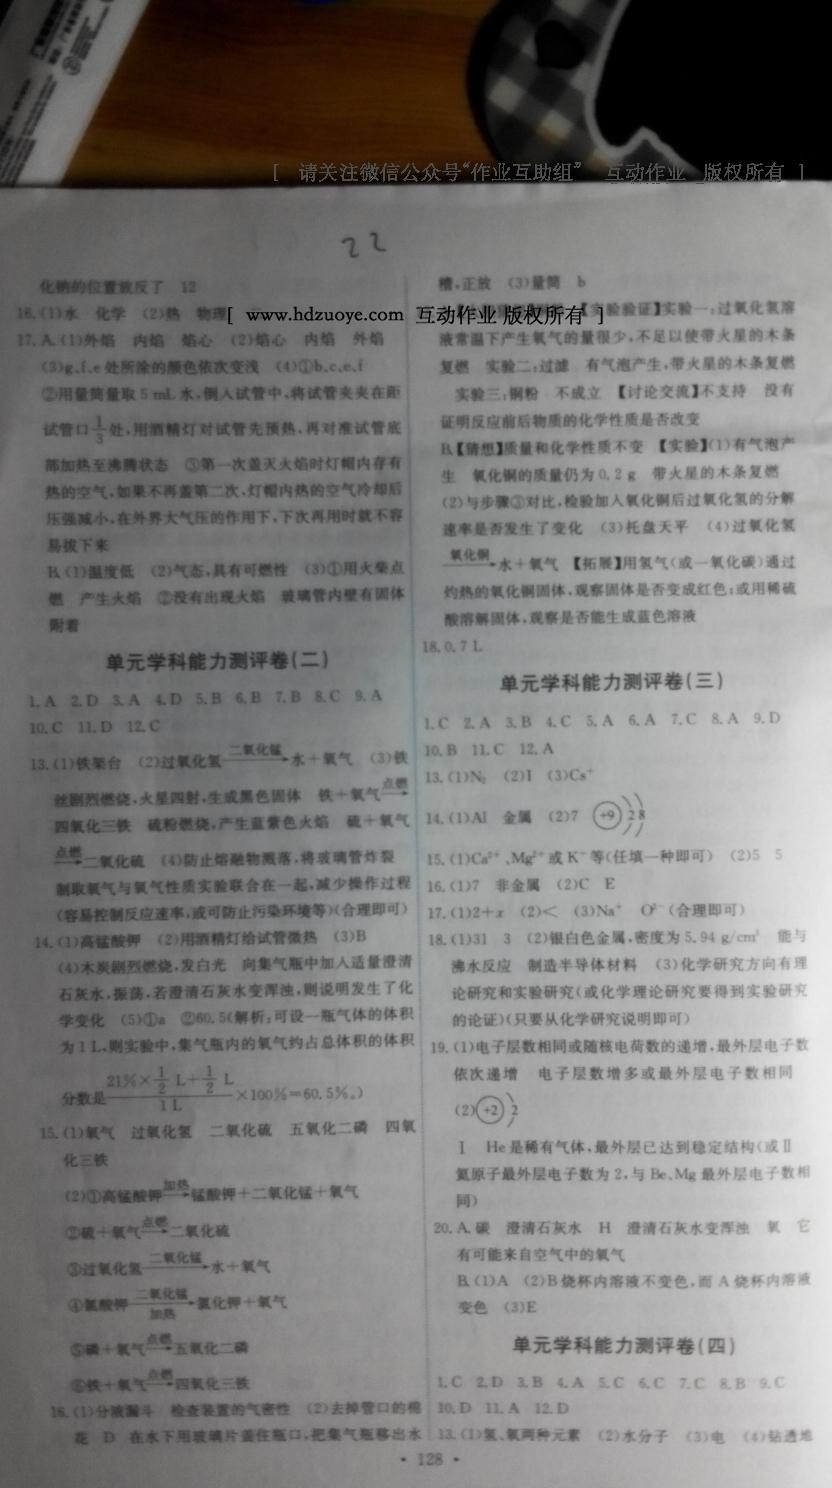 [ 请关注微信公众号“作业互助组” 互动作业 版权所有 ]
22
化钠的位置放反了 12
16.(1)水 化学 (2)热 物理
[ www.hdzuoye.com 互动作业 版权所有 ]
17.A.(1)外焰 内焰 焰心 (2)焰心 内焰 外焰
(3)g、f、e处所涂的颜色依次变浅 (4)①b、c、e、f
②用量筒量取5 mL水,倒入试管中,将试管夹夹在距
试管口1/3处,用酒精灯对试管先预热,再对准试管底
部加热至沸腾状态 ③第一次盖灭火焰时灯帽内存有
热的空气,如果不再盖第二次,灯帽内热的空气冷却后
压强减小,在外界大气压的作用下,下次再用时就不容
易拔下来
B.(1)温度低 (2)气态,具有可燃性 (3)①用火柴点
燃 产生火焰 ②没有出现火焰 玻璃管内壁有固体
附着
单元学科能力测评卷(二)
1.A 2.D 3.A 4.D 5.B 6.B 7.B 8.C 9.A
10.C 11.D 12.C
13.(1)铁架台 (2)过氧化氢 二氧化锰→ 水+氧气 (3)铁
丝剧烈燃烧,火星四射,生成黑色固体 铁+氧气 点燃→
四氧化三铁 硫粉燃烧,产生蓝紫色火焰 硫+氧气
点燃→ 二氧化硫 (4)防止熔融物溅落,将玻璃管炸裂
制取氧气与氧气性质实验联合在一起,减少操作过程
(容易控制反应速率,或可防止污染环境等)(合理即可)
14.(1)高锰酸钾 (2)用酒精灯给试管微热 (3)B
(4)木炭剧烈燃烧,发白光 向集气瓶中加入适量澄清
石灰水,振荡,若澄清石灰水变浑浊,则说明发生了化
学变化 (5)①a ②60.5(解析:可设一瓶气体的体积
为1 L,则实验中,集气瓶内的氧气约占总体积的体积
分数是 (21%×1/2 L+1/2 L)/1 L ×100%=60.5%。)
15.(1)氧气 过氧化氢 二氧化硫 五氧化二磷 四氧
化三铁
(2)①高锰酸钾 加热→ 锰酸钾+二氧化锰+氧气
②硫+氧气 点燃→ 二氧化硫
③过氧化氢 二氧化锰→ 水+氧气
④氯酸钾 二氧化锰 加热→ 氯化钾+氧气
⑤磷+氧气 点燃→ 五氧化二磷
⑥铁+氧气 点燃→ 四氧化三铁
16.(1)分液漏斗 检查装置的气密性 (2)去掉管口的棉
花 D 在水下用玻璃片盖住瓶口,把集气瓶移出水
槽,正放 (3)量筒 b
【实验验证】实验一:过氧化氢溶
液常温下产生氧气的量很少,不足以使带火星的木条
复燃 实验二:过滤 有气泡产生,带火星的木条复燃
实验三:铜粉 不成立 【讨论交流】不支持 没有
证明反应前后物质的化学性质是否改变
B.【猜想】质量和化学性质不变 【实验】(1)有气泡产
生 氧化铜的质量仍为0.2 g 带火星的木条复燃
(2)与步骤③对比,检验加入氧化铜后过氧化氢的分解
速率是否发生了变化 (3)托盘天平 (4)过氧化氢
氧化铜→ 水+氧气 【拓展】用氢气(或一氧化碳)通过
灼热的氧化铜固体,观察固体是否变成红色;或用稀硫
酸溶解固体,观察是否能生成蓝色溶液
18.0.7 L
单元学科能力测评卷(三)
1.C 2.A 3.B 4.C 5.A 6.A 7.C 8.A 9.D
10.B 11.C 12.A
13.(1)N₂ (2)I (3)Cs⁺
14.(1)Al 金属 (2)7 +9 2 8
15.(1)Ca²⁺、Mg²⁺或K⁺等(任填一种即可) (2)5 5
16.(1)7 非金属 (2)C E
17.(1)2+x (2)< (3)Na⁺ O²⁻(合理即可)
18.(1)31 3 (2)银白色金属,密度为5.94 g/cm³ 能与
沸水反应 制造半导体材料 (3)化学研究方向有理
论研究和实验研究(或化学理论研究要得到实验研究
的论证)(只要从化学研究说明即可)
19.(1)电子层数相同或随核电荷数的递增,最外层电子数
依次递增 电子层数增多或最外层电子数相同
(2) +2 2
Ⅰ He是稀有气体,最外层已达到稳定结构(或Ⅱ
氦原子最外层电子数为2,与Be、Mg最外层电子数相
同)
20.A.碳 澄清石灰水 H 澄清石灰水变浑浊 氧 它
有可能来自空气中的氧气
B.(1)A (2)B烧杯内溶液不变色,而A烧杯内溶液
变色 (3)E
单元学科能力测评卷(四)
1.C 2.D 3.B 4.A 5.C 6.C 7.C 8.B 9.C
10.D 11.A 12.D
13.(1)氢、氧两种元素 (2)水分子 (3)电 (4)钻透地
• 128 •